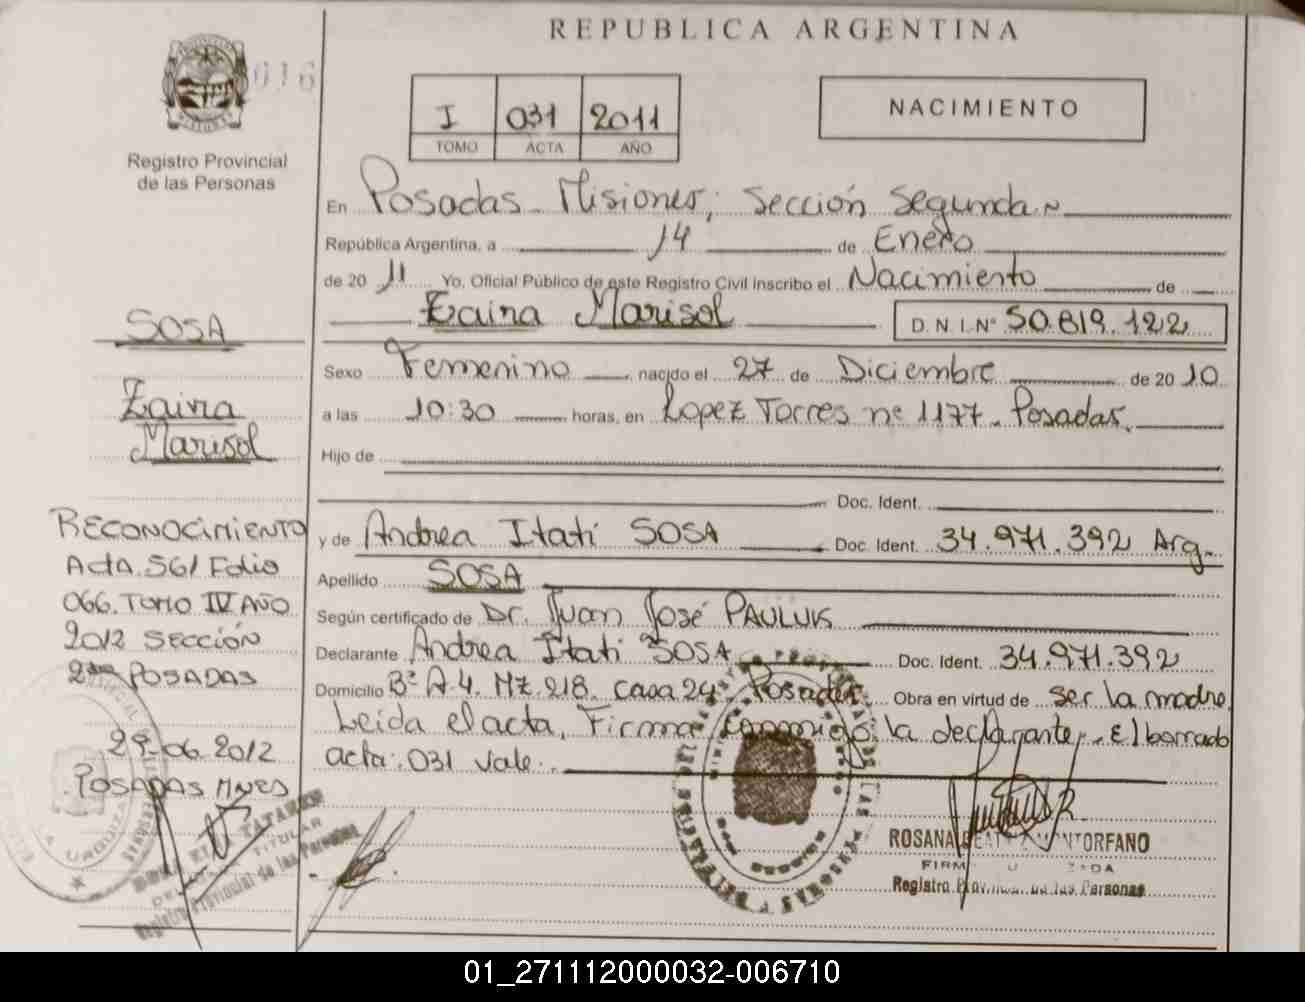 REPUBLICA ARGENTINA
016
I 031 2011
TOMO ACTA AÑO
NACIMIENTO
Registro Provincial
de las Personas
En Posadas - Misiones, Sección Segunda.
República Argentina, a 14 de Enero
de 20 11 Yo, Oficial Público de este Registro Civil inscribo el Nacimiento de
Zaira Marisol D. N. I. Nº 50.819.122
Sexo Femenino nacido el 27 de Diciembre de 20 10
a las 10:30 horas, en Lopez Torres nº 1177 - Posadas.
Hijo de
Doc. Ident.
y de Andrea Itatí SOSA Doc. Ident. 34.971.392 Arg.
Apellido SOSA
Según certificado de Dr. Juan José PAULUK
Declarante Andrea Itatí SOSA Doc. Ident. 34.971.392
Domicilio Bº A-4. Mz. 218. Casa 24. Posadas. Obra en virtud de ser la madre.
Leida el acta, Firma conmigo la declarante, - El borrado
acta: 031 vale.
SOSA
Zaira
Marisol
RECONOCIMIENTO
Acta. 561 Folio
066. TOMO IV AÑO
2012 SECCIÓN
2da POSADAS
29-06-2012
POSADAS MNES
TITULAR
Registro Provincial de las Personas
ROSANA MONTORFANO
Registro Provincial de las Personas
01_271112000032-006710